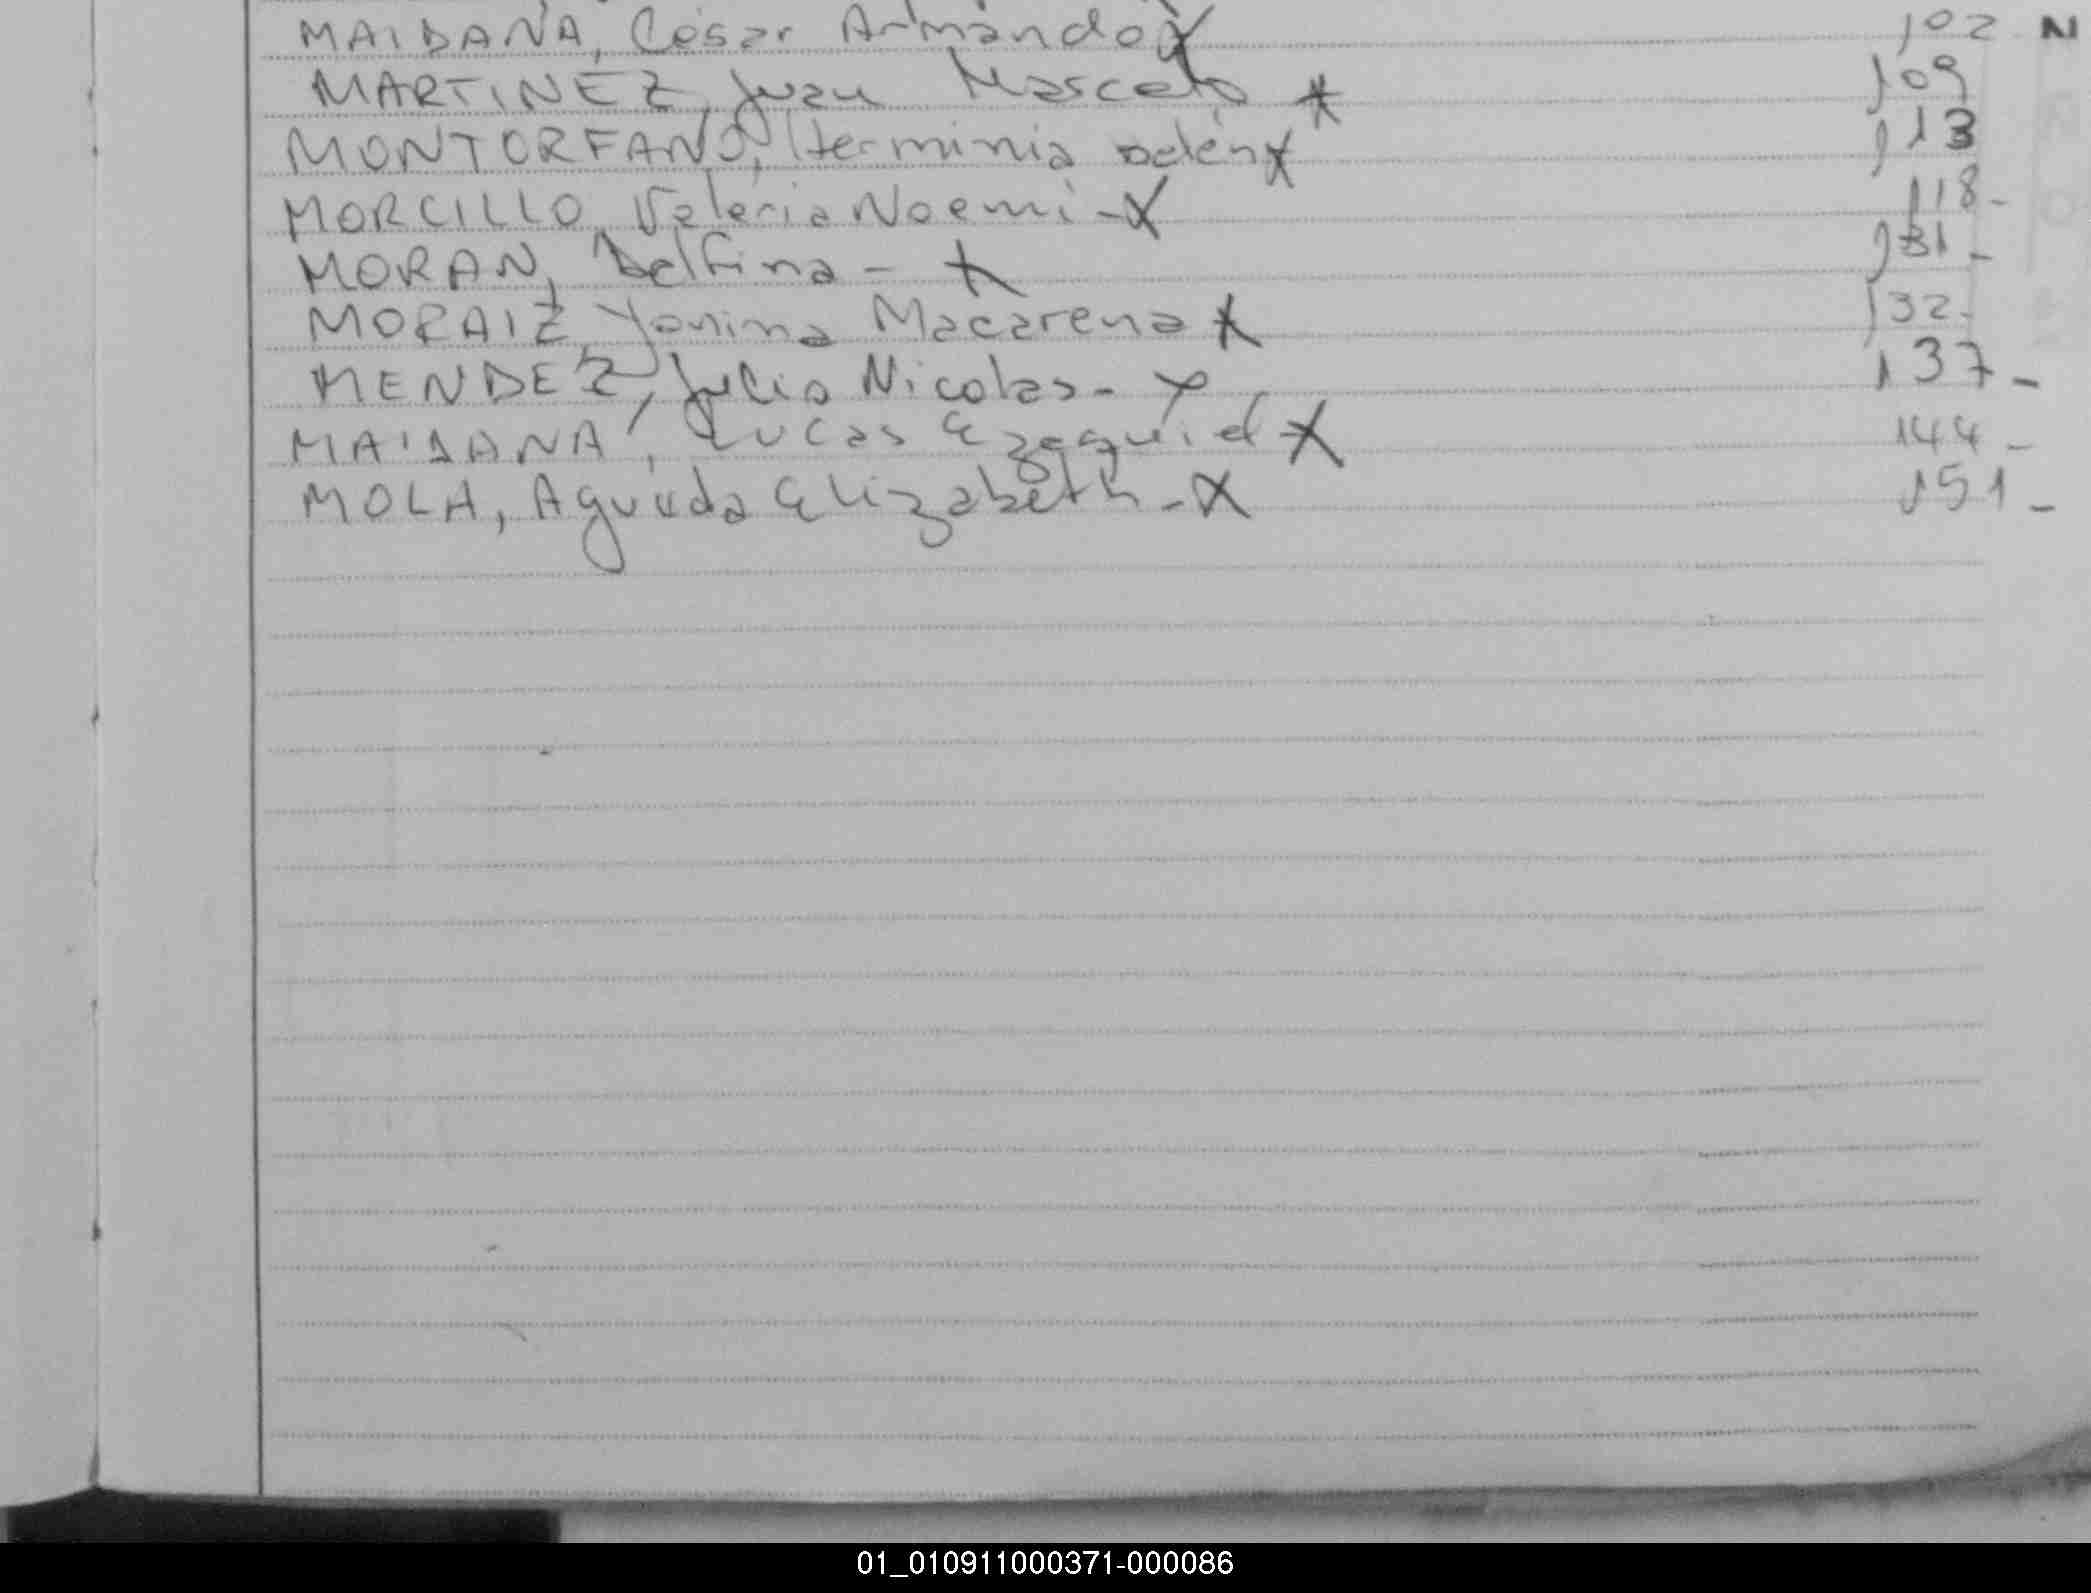 MAIDANA, César Armando X 102 N
MARTINEZ, Juan Marcelo X 109
MONTORFANO, Herminia belén X 113
MORCILLO, Valeria Noemi - X 118 -
MORAN, Delfina - X 131 -
MORAIZ, Yanina Macarena X 132 -
MENDEZ, Julio Nicolas - X 137 -
MAIDANA, Lucas Ezequiel - X 144 -
MOLA, Agueda Elizabeth - X 151 -
01_010911000371-000086